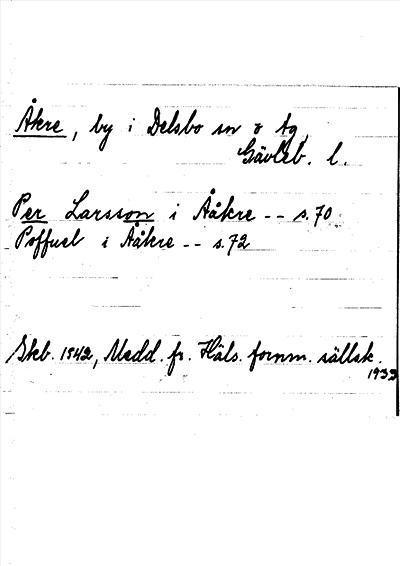 Åkre, by i Delsbo sn o tg,
Gävleb. l.
Per Larsson i Ååkre -- s. 70
Poffuel i Ååkre -- s. 72
Skb. 1542, Medd. fr. Häls. fornm. sällsk.
1933